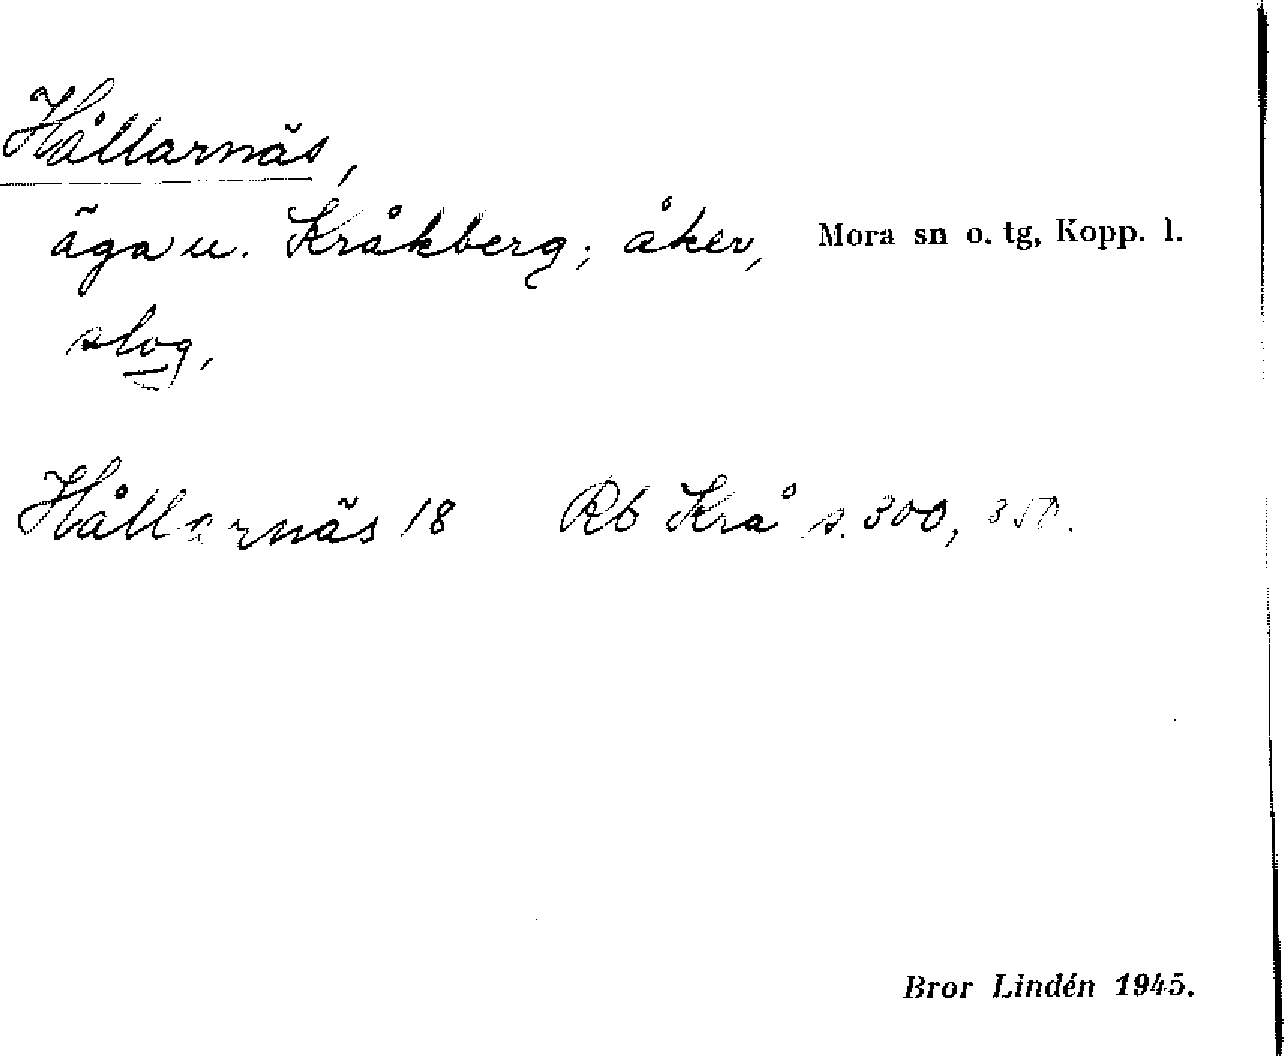 Hållarnäs,
äga u. Kråkberg; åker, Mora sn o. tg, Kopp. l.
slog,
Hållarnäs 18 Rb Krå s. 300, 350.
Bror Lindén 1945.